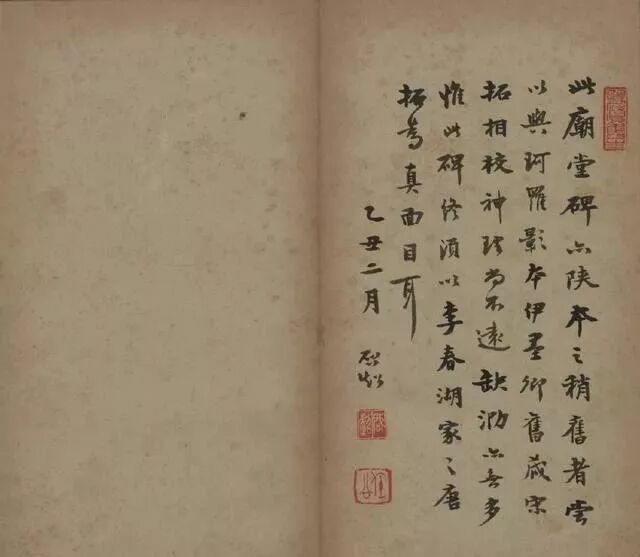 此廟堂碑亦陝本之稍舊者雲
以與珂羅影本伊墨卿舊藏宋
拓相校神理尚不遠缺泐亦無多
惟此碑終須以李春湖家之唐
拓為真面目耳
乙丑二月